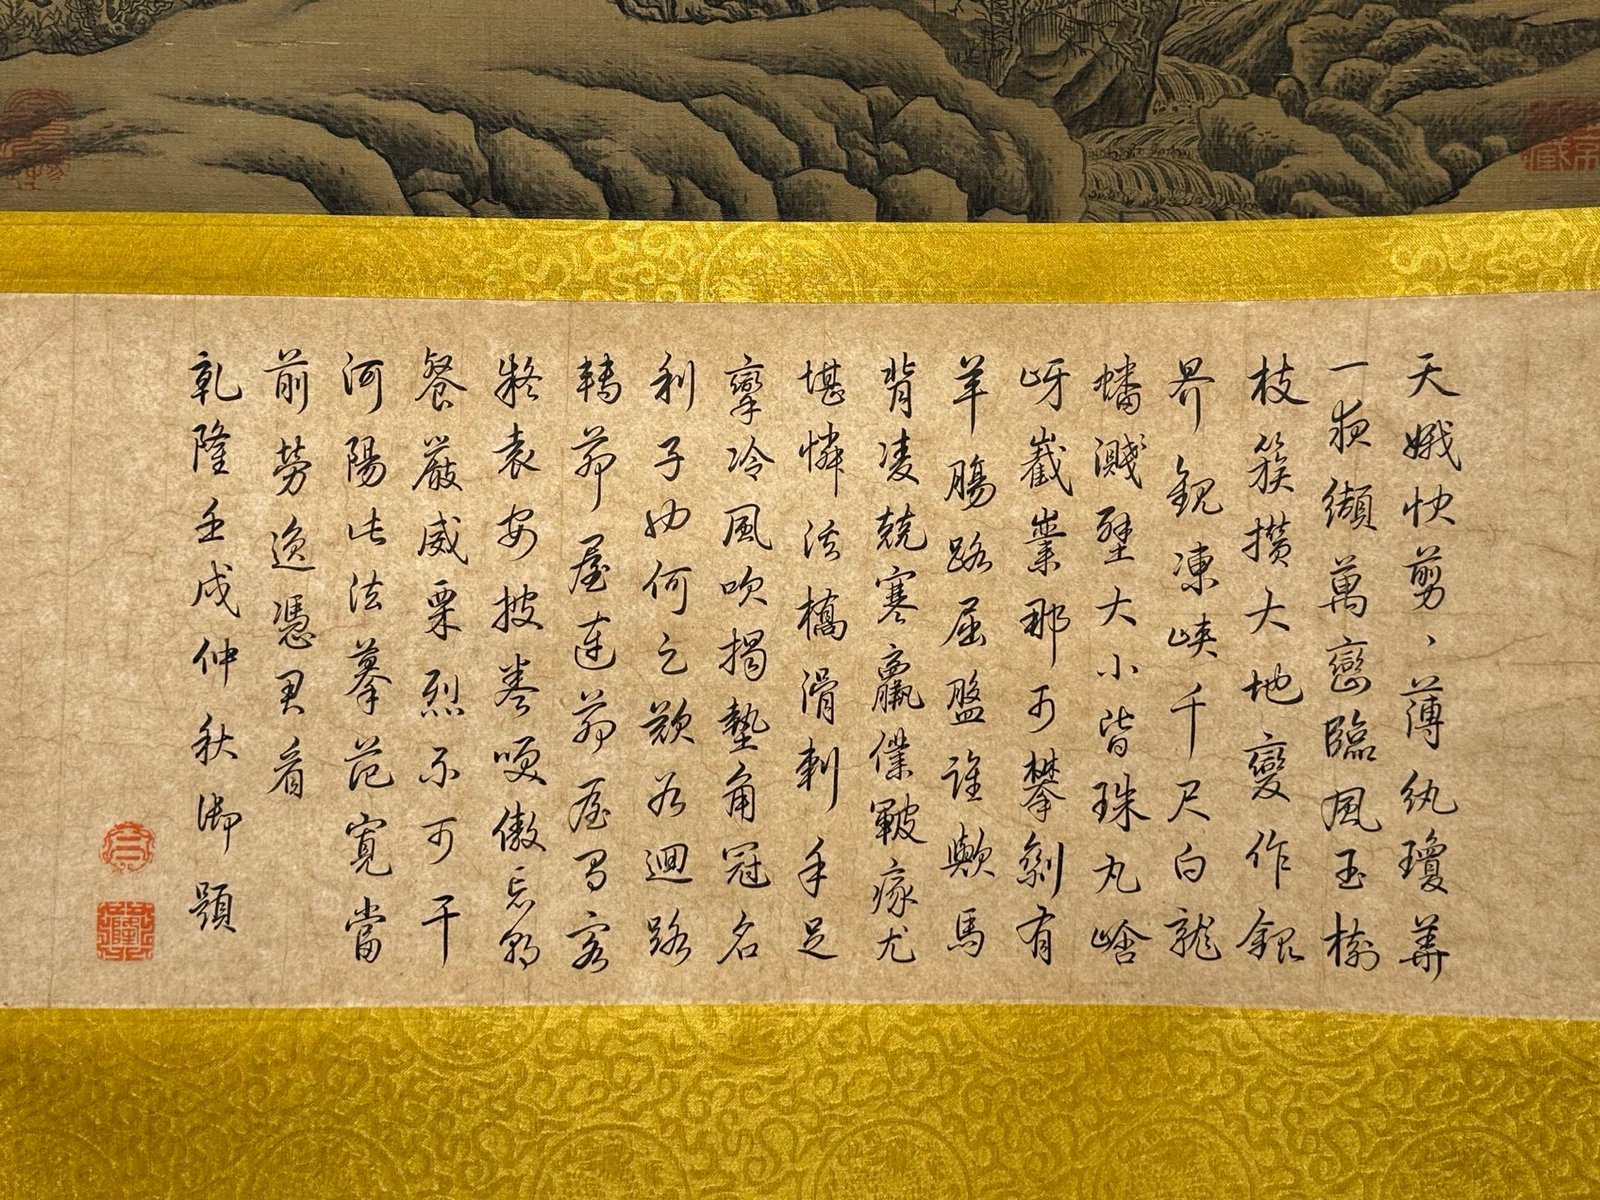 天娥快剪、薄紈瓊華
一夜纈萬巒臨風玉樹
枝簇攢大地變作銀
界觀凍峽千尺白龍
蟠濺壁大小皆珠丸谽
岈嶻嶪那可攀劣有
羊腸路屈盤誰歟馬
背凌兢寒羸僕皸瘃尤
堪憐滋橋滑刺手足
攣冷風吹揭墊角冠名
利子幼何之歎為迴路
轉茆屋連茆屋留客
袁安披卷哦傲忘朝
餐嚴威栗烈不可干
河陽法摹范寬當
前勞逸憑君看
乾隆壬戌仲秋御題